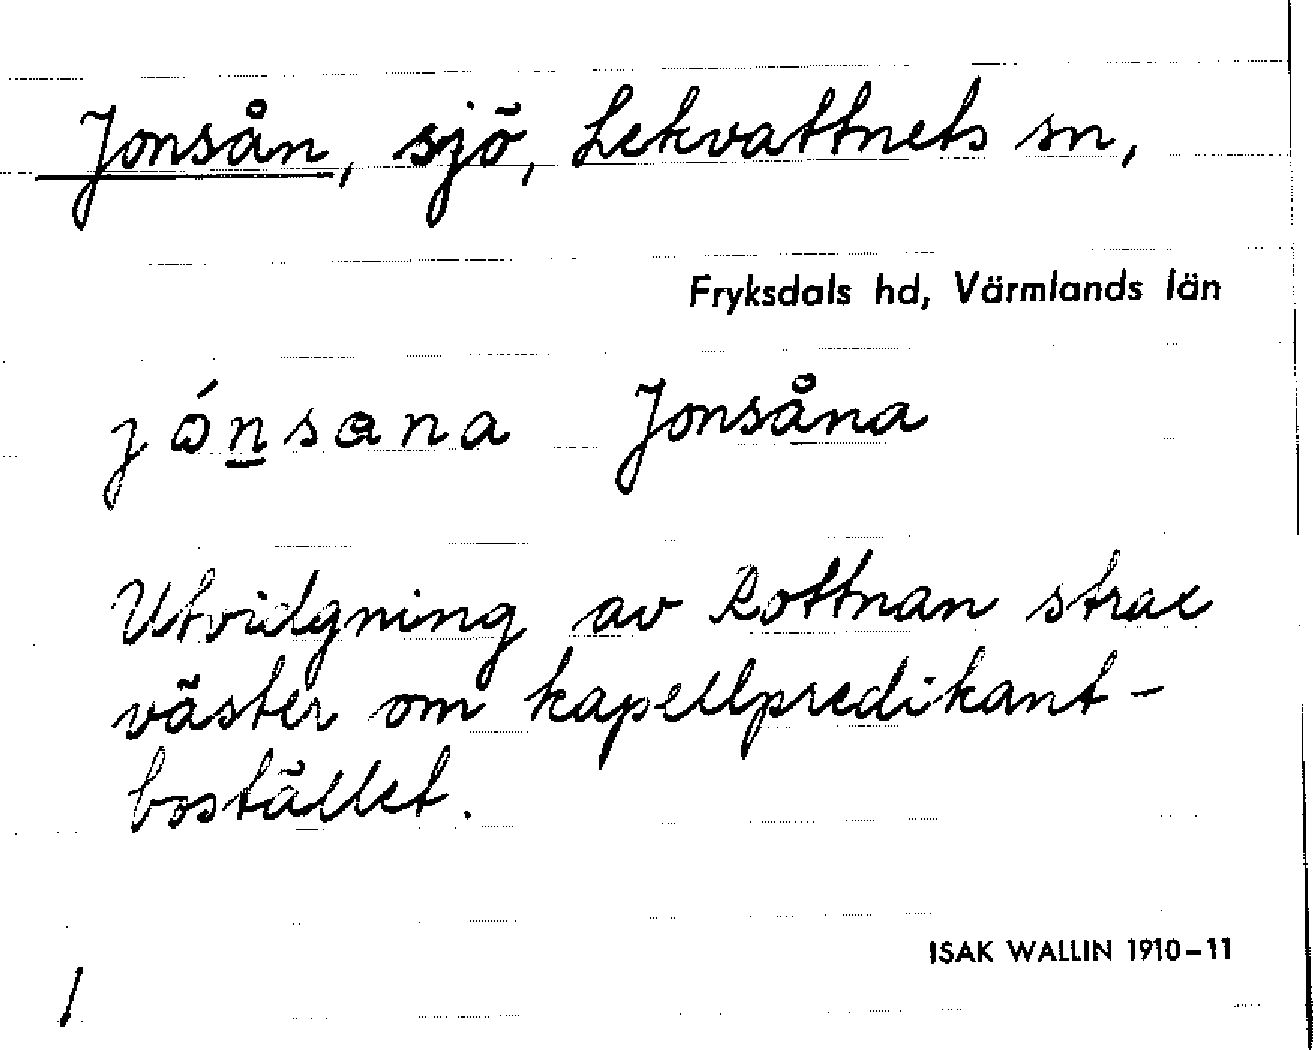 Jonsån, sjö, Lekvattnets sn,
Fryksdals hd, Värmlands län
jónsana Jonsåna
Utvidgning av Rottnan strax
väster om kapellpredikant-
bostället.
ISAK WALLIN 1910-11
1